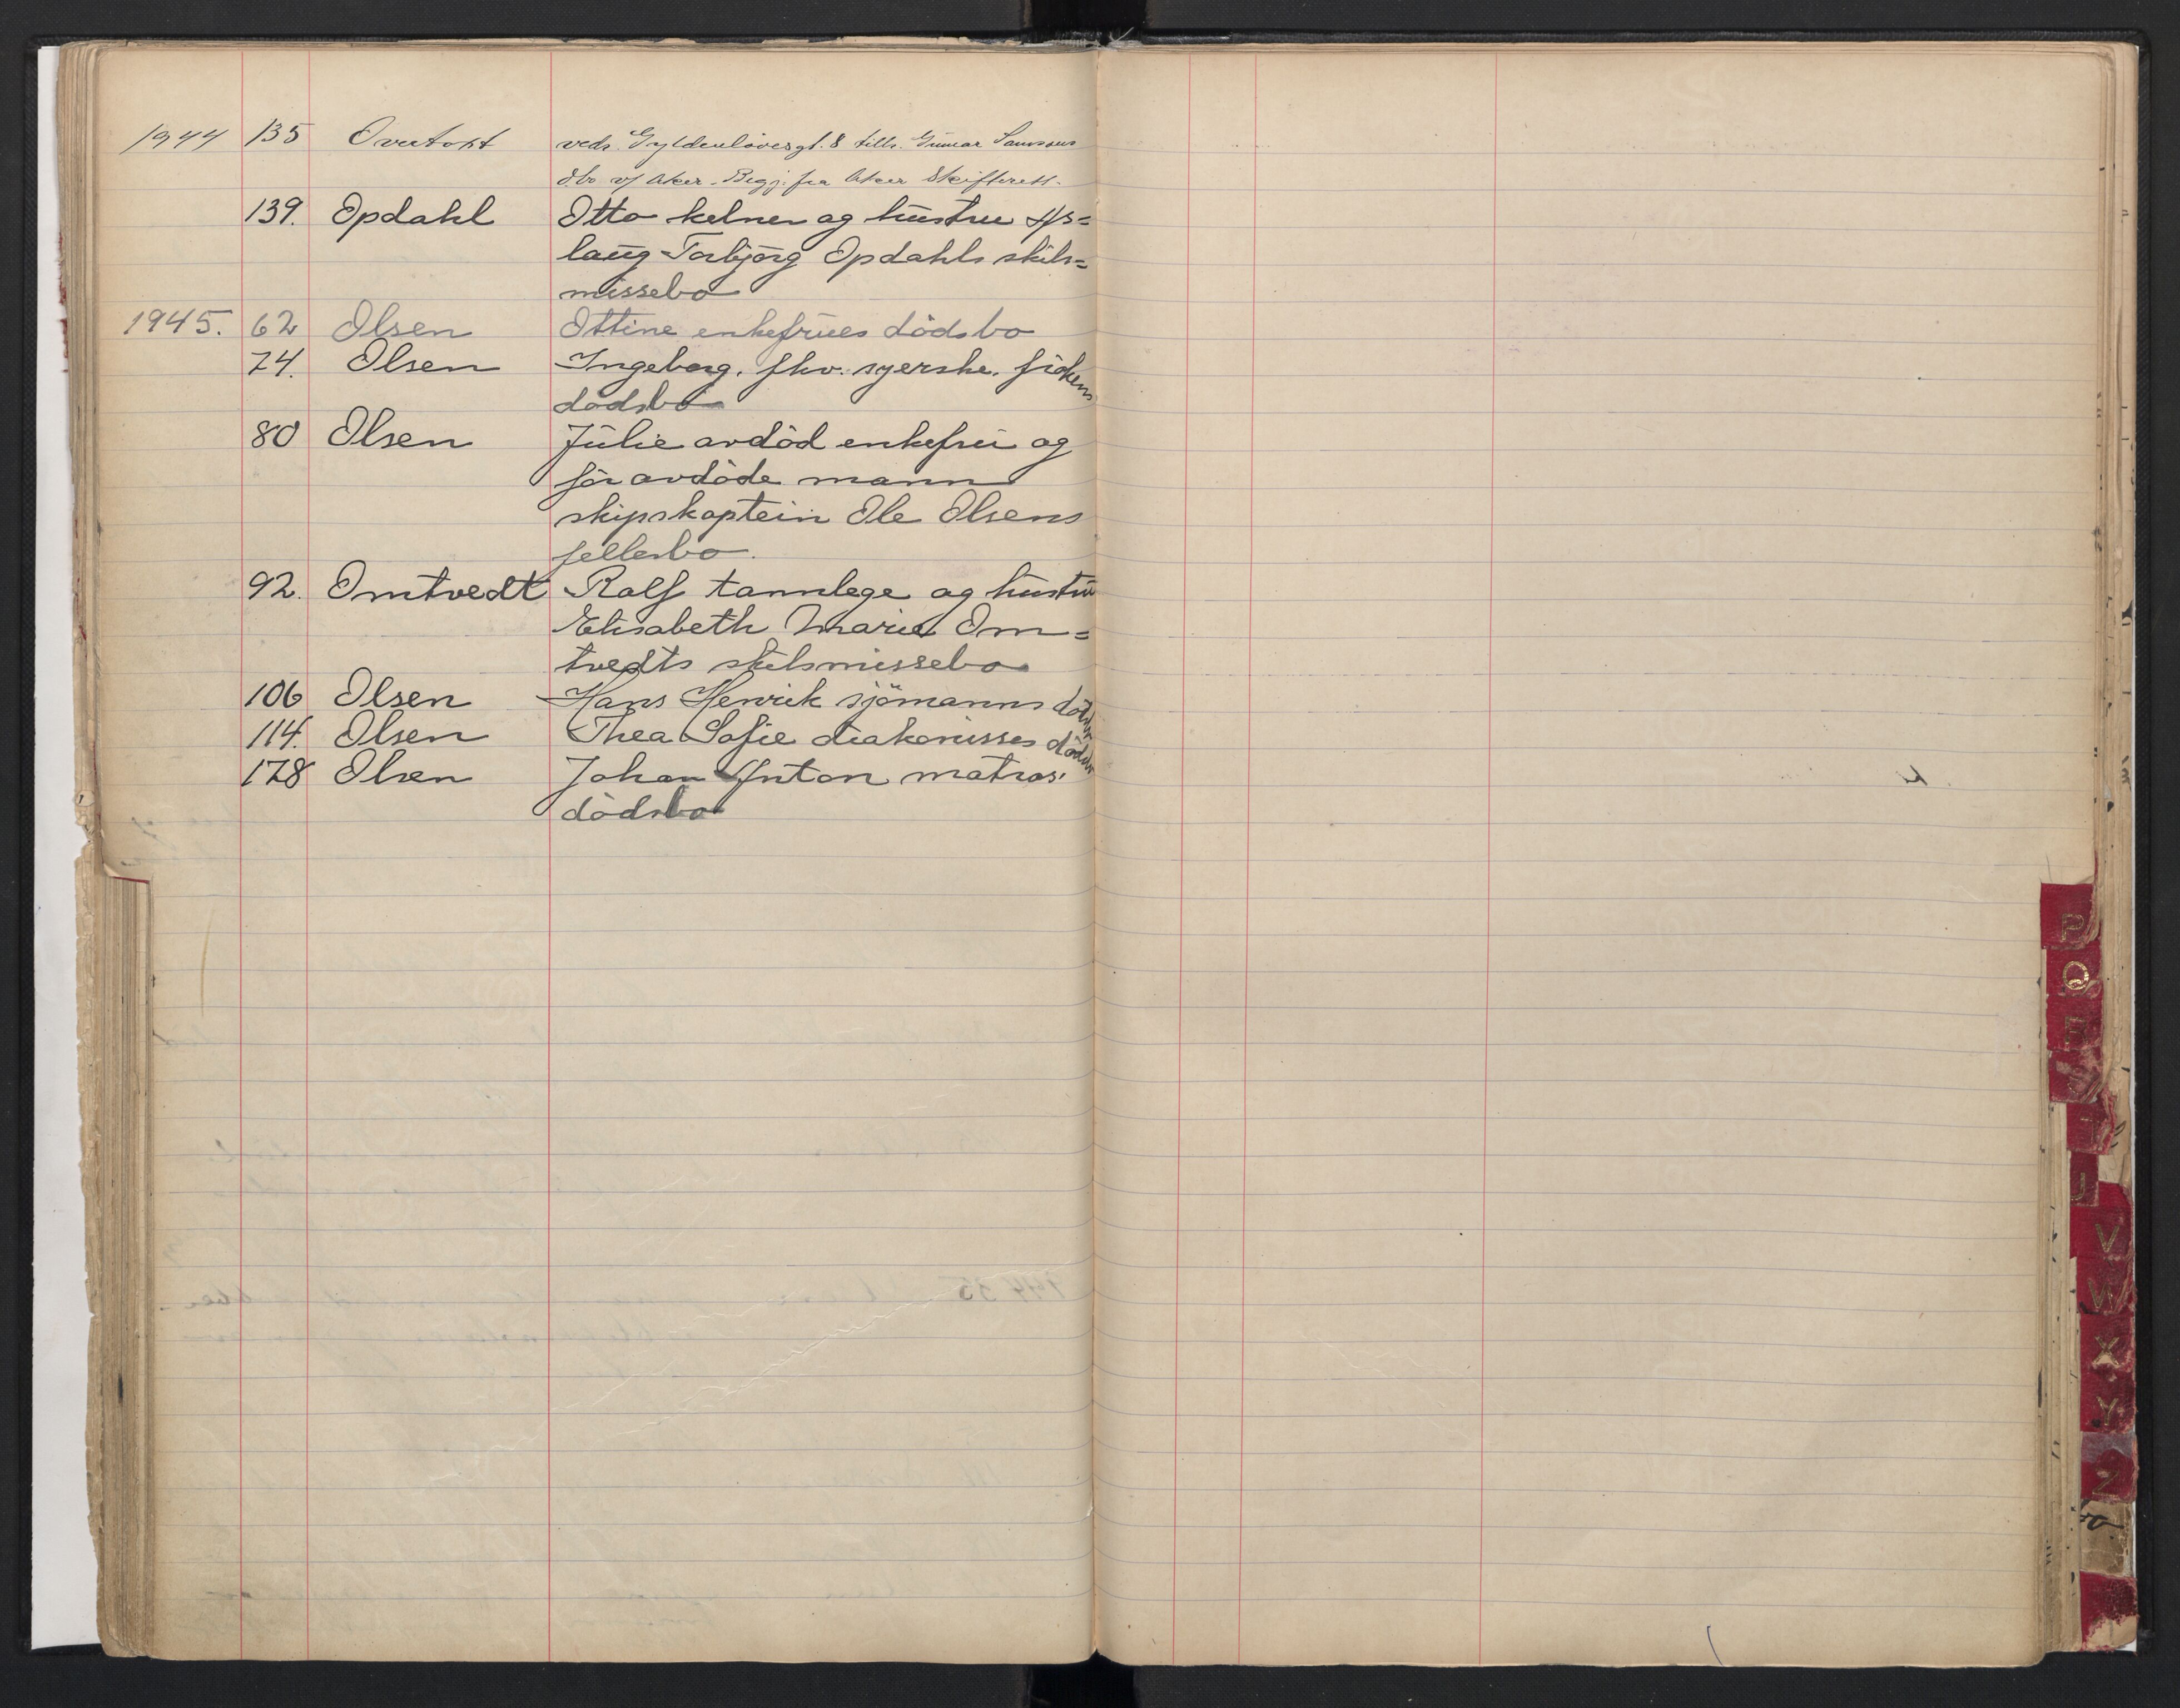 1944 135 Overtakst veds. Gyldenløvesgt. 8 tilh. Gunnar Samsons
d.bo v/ Aker. Begj. fra Aker Skifterett.
139. Opdahl Otto kelner og hustru As=
laug Torbjørg Opdahls skils=
missebo
1945. 62 Olsen Ottine enkefrues dödsbo
74. Olsen Ingeborg. fhv. syerske. frökens
dödsbo
80 Olsen Julie avdöd enkefru og
för avdöde mann
skipskaptein Ole Olsens
fellesbo.
92. Omtvedt Ralf tannlege og hustru
Elisabeth Marie Om=
tvedts skilsmissebo
106 Olsen Hans Henrik sjömanns dödsbo
114. Olsen Thea Sofie diakonisses dödsbo
178 Olsen Johan Anton matros'
dödsbo
P
Q
R
U
V
W
X
Y
Z